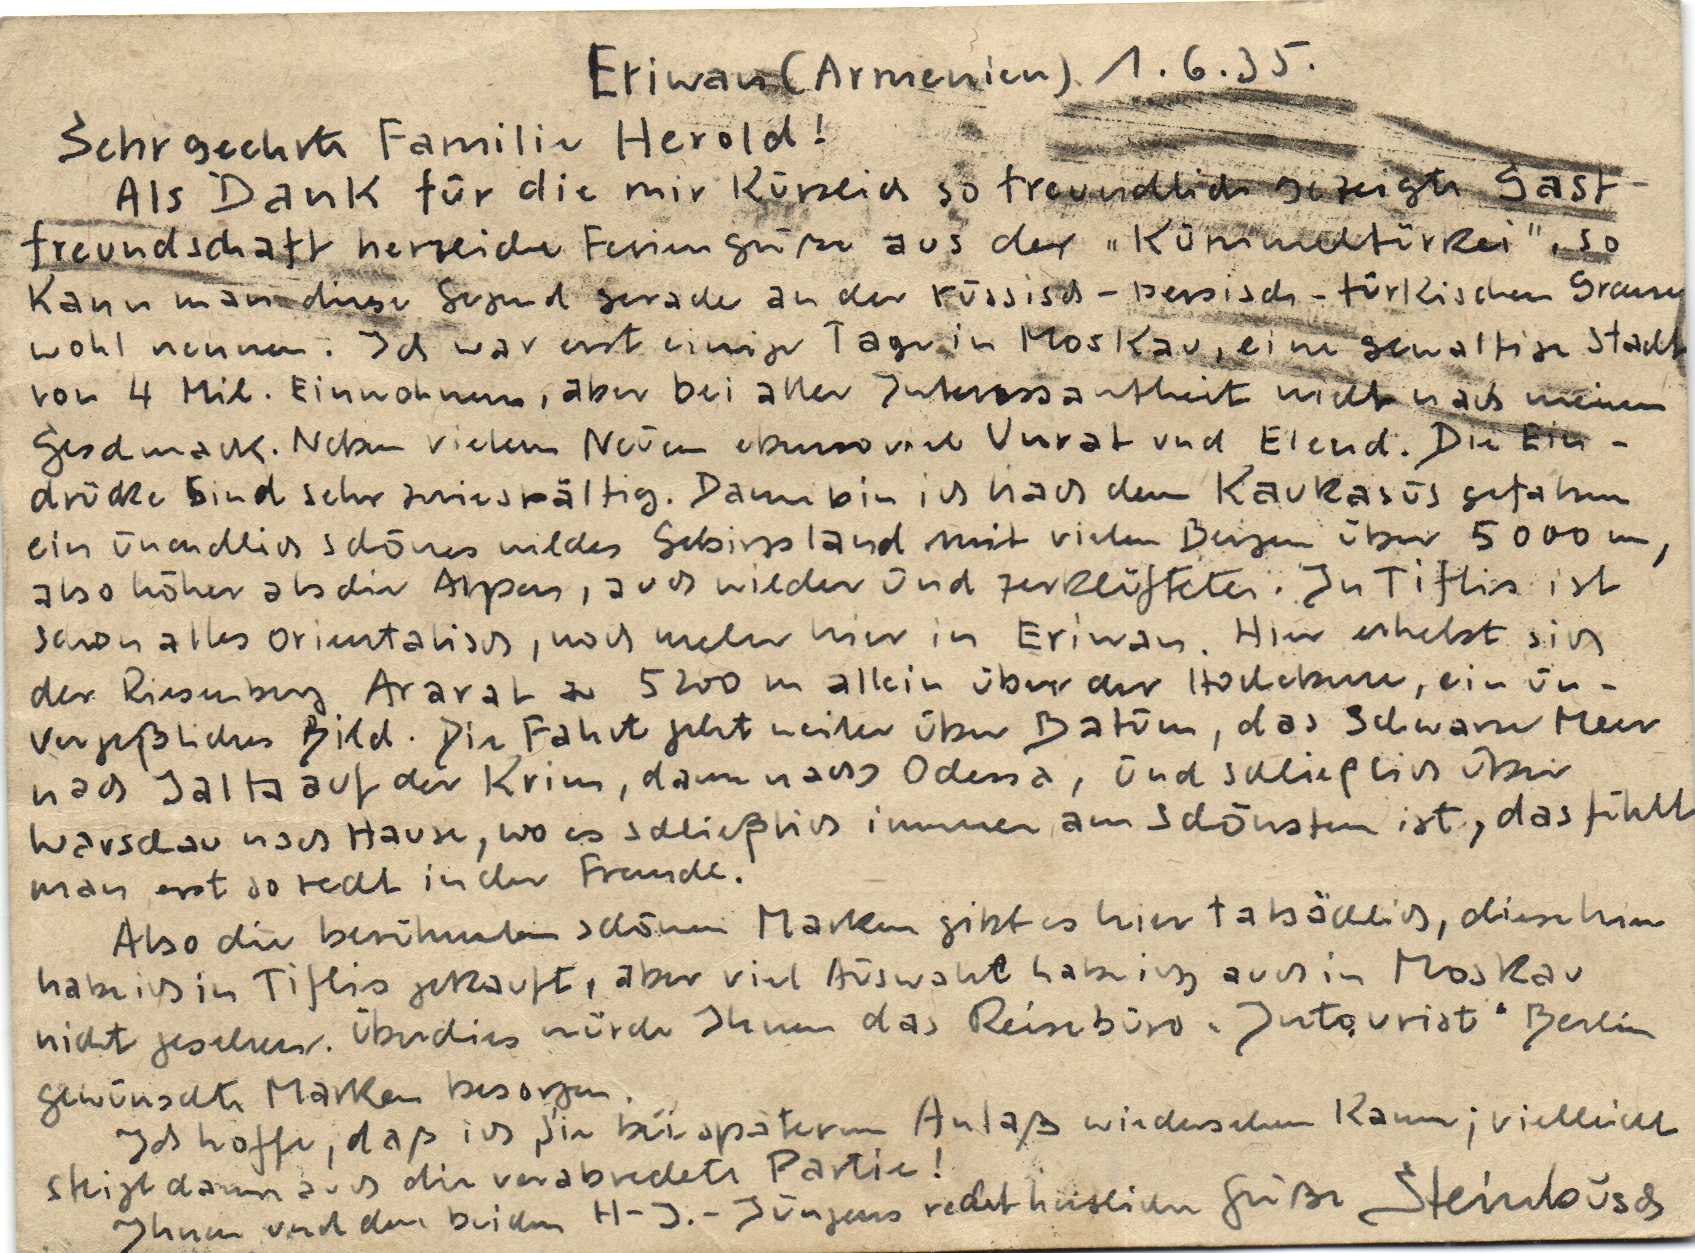 Eriwan (Armenien) 1.6.35.
Sehr geehrte Familie Herold!
Als Dank für die mir kürzlich so freundlich gezeigte Gast-
freundschaft herzliche Feriengrüße aus der „Kümmeltürkei", so
kann man diese Gegend gerade an der russisch-persisch-türkischen Grenze
wohl nennen. Ich war erst einige Tage in Moskau, eine gewaltige Stadt
von 4 Mil. Einwohnern, aber bei aller Interessantheit nicht nach meinem
Geschmack. Neben vielem Neuen ebensoviel Unrat und Elend. Die Ein-
drücke sind sehr zwiespältig. Dann bin ich nach dem Kaukasus gefahren
ein unendlich schönes wildes Gebirgsland mit vielen Bergen über 5000 m,
also höher als die Alpen, auch wilder und zerklüfteter. In Tiflis ist
schon alles orientalisch, noch mehr hier in Eriwan. Hier erhebt sich
der Riesenberg Ararat zu 5200 m allein über der Hochebene, ein un-
vergeßliches Bild. Die Fahrt geht weiter über Batum, das Schwarze Meer
nach Jalta auf der Krim, dann nach Odessa, und schließlich über
Warschau nach Hause, wo es schließlich immer am schönsten ist, das fühlt
man erst so recht in der Fremde.
Also die berühmten schönen Marken gibt es hier tatsächlich, diese hier
habe ich in Tiflis gekauft, aber viel Auswahl habe ich auch in Moskau
nicht gesehen. Überdies würde Ihnen das Reisebüro „Intourist" Berlin
gewünschte Marken besorgen.
Ich hoffe, daß ich Sie bei späterem Anlaß wiedersehen kann; vielleicht
steigt dann auch die verabredete Partie!
Ihnen und den beiden H-J.-Jungens recht herzliche Grüße Steinbusch